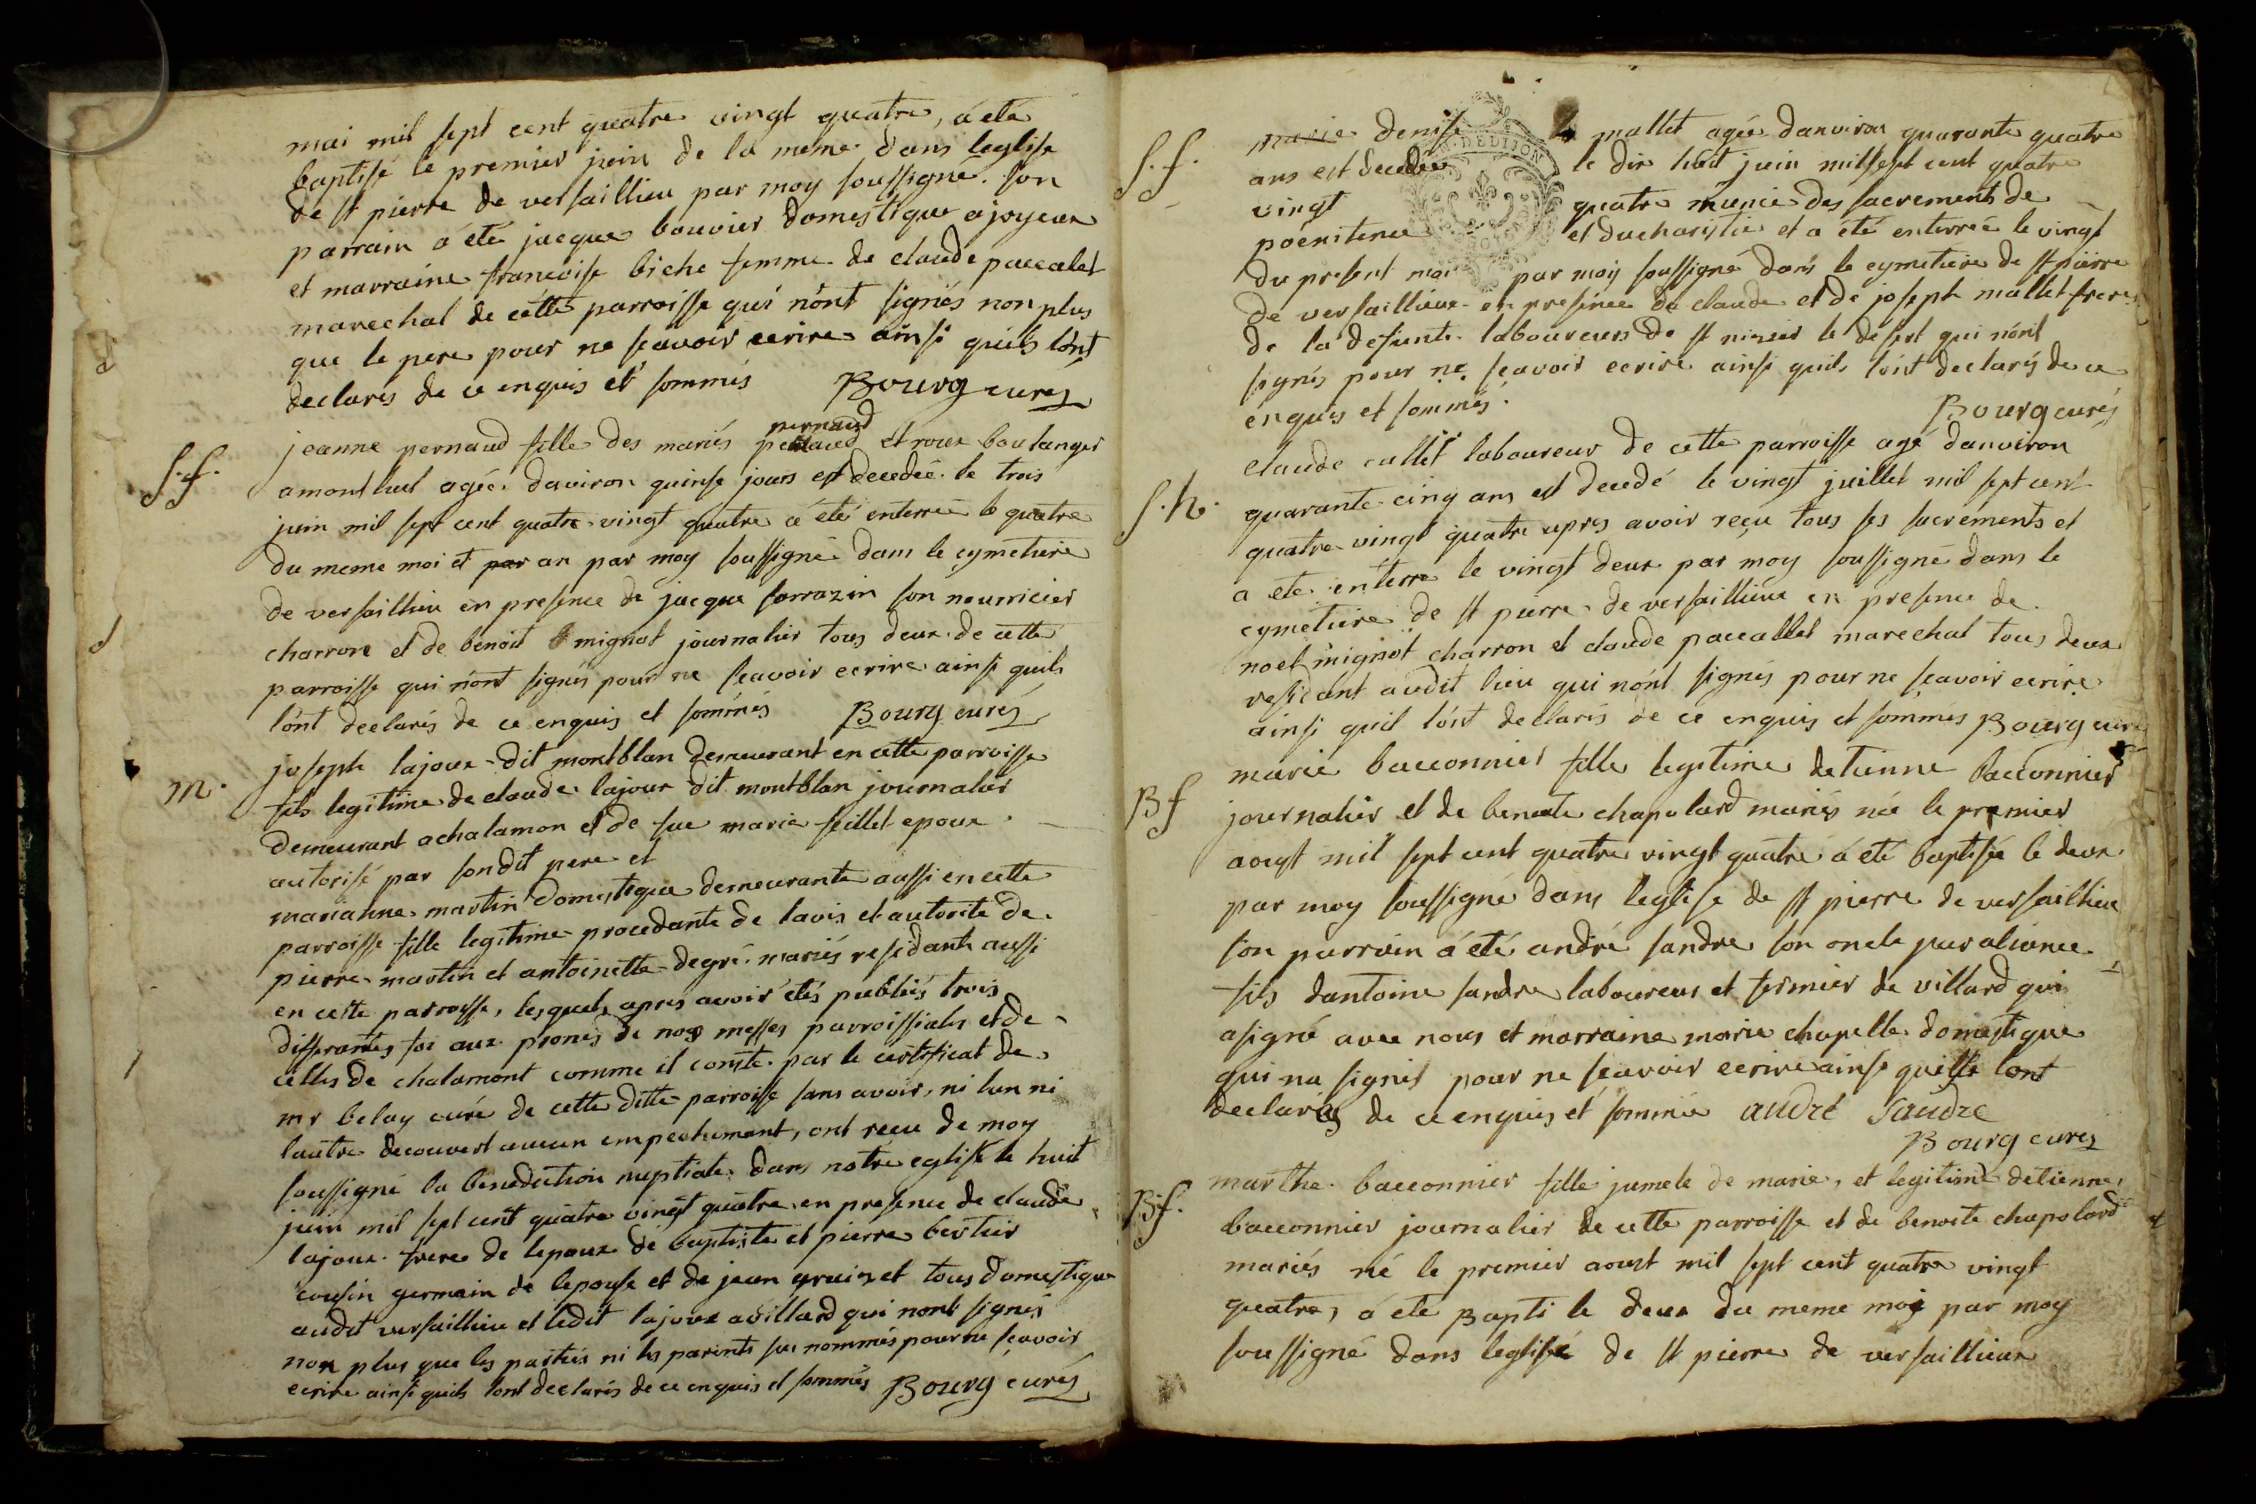 mai mil sept cent quatre vingt quatre, a été
baptisé le premier juin de la meme dans leglise
de st pierre de versaillieu par moy soussigné. son
parrain a été jacque bouvier domestique a joyeux
et marraine francoise biche femme de claude paccalet
marechal de cette parroisse qui n'ont signés non plus
que le pere pour ne scavoir ecrire ainsi quils l'ont
declarés de ce enquis et sommés Bourg curés
S.f.
jeanne pernaud fille des mariés pernaud et roux boulanger
a montluel agée daviron quinse jours est decedée le trois
juin mil sept cent quatre vingt quatre a été enterrée le quatre
du meme moi et par an par moy soussigné dans le cymetiere
de versaillieu en presence de jacque sarrazin son nourricier
charron et de benoit mignot journalier tous deux de cette
parroisse qui n'ont signés pour ne scavoir ecrire ainsi quils
l'ont declarés de ce enquis et sommés Bourg curés
m.
joseph lajoux dit montblan demeurant en cette parroisse
fils legitime de claude lajoux dit montblan journalier
demeurant a chalamon et de fue marie feillet epoux
autorisé par sondit pere et
marianne martin domestique demeurante aussi en cette
parroisse fille legitime procedante de lavis et autorité de
pierre martin et antoinette degré mariés residants aussi
en cette parroisse, lesquels apres avoir étés publiés trois
differantes foi aux prones de nos messes parroissiales et de
celles de chalamont comme il conste par le certificat de
mr belay curé de cette ditte parroisse sans avoir, ni lun ni
lautre decouvert aucun empechement, ont recu de moy
soussigné la benediction nuptiale dans notre eglise le huit
juin mil sept cent quatre vingt quatre en presence de claude
lajoux frere de lepoux de baptiste et pierre bertier
cousin germain de lepouse et de jean et tous domestique
audit versaillieu et ledit lajoux a villard qui nont signés
non plus que les parties ni les parents sus nommés pour ne scavoir
ecrire ainsi quils lont declarés de ce enquis et sommés Bourg curés
S.f.
marie denise mallet agée danviron quarante quatre
ans est decedée le dix huit juin mil sept cent quatre
vingt quatre munie des sacrements de
poenitence et d'ucharistie et a été enterrée le vingt
du present moi par moy soussigné dans le cymetiere de st pierre
de versaillieux en presence de claude et de joseph mallet freres
de la defunte laboureurs de st nizier le desert qui nont
signés pour ne scavoir ecrire ainsi quils lont declarés de ce
enquis et sommés. Bourg curés
S.h.
claude callet laboureur de cette parroisse agé danviron
quarante cinq ans est decedé le vingt juillet mil sept cent
quatre vingt quatre apres avoir reçu tous ses sacrements et
a eté enterré le vingt deux par moy soussigné dans le
cymetiere de st pierre de versaillieux en presence de
noel mignot charron et claude paccallet marechal tous deux
residant audit lieu qui n'ont signés pour ne scavoir ecrire
ainsi quil l'ont declarés de ce enquis et sommés Bourg curé
Bf
marie bacconnier fille legitime detienne bacconnier
journalier et de benoite chapolard mariés née le premier
aoust mil sept cent quatre vingt quatre a été baptisée le deux
par moy soussigné dans leglise de st pierre de versaillieux
son parrain a été andré sandre son oncle par aliance
fils dantoine sandre laboureur et fermier de villard qui
a signé avec nous et marraine marie chapelle domestique
qui na signés pour ne scavoir ecrire ainsi quelle lont
declarés de ce enquis et sommée andré Sandre
Bourg curés
B.f.
marthe bacconnier fille jumele de marie, et legitime detienne
bacconnier journalier de cette parroisse et de benoite chapolard
mariés né le premier aoust mil sept cent quatre vingt
quatre, a eté Bapti le deux du meme moi par moy
soussigné dans leglise de st pierre de versaillieux